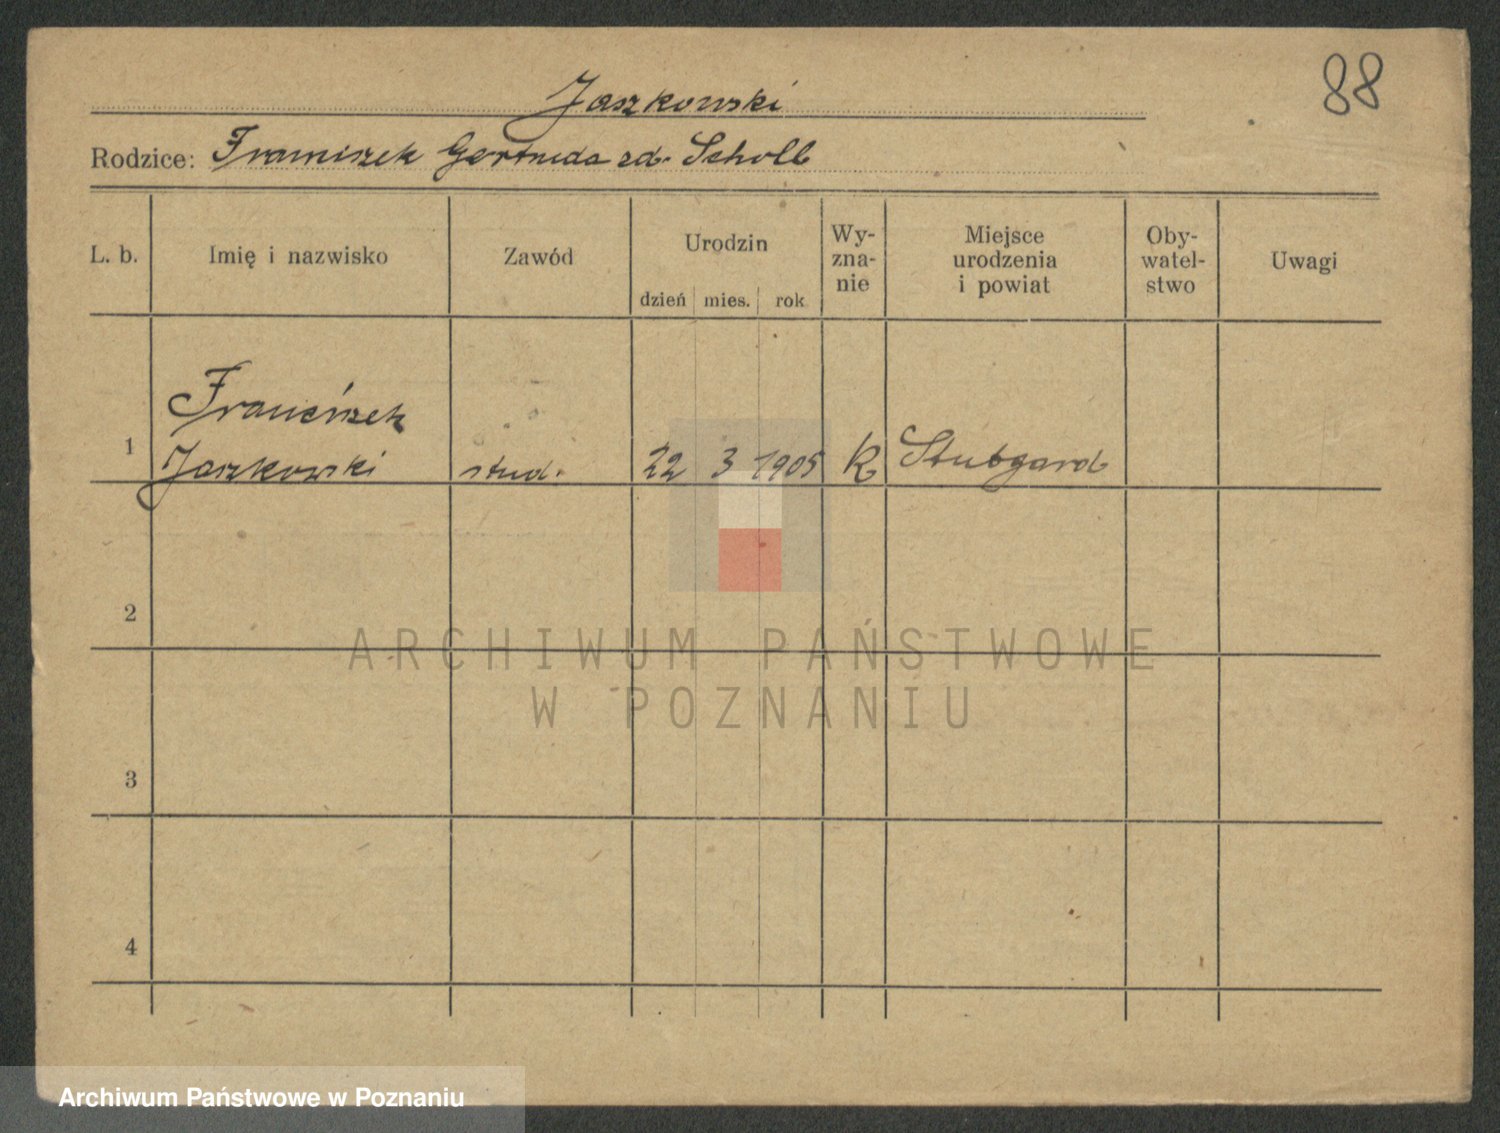 88
Jaszkowski
Rodzice: Franciszek Gertruda zd. Scholl
L. b. Imię i nazwisko Zawód Urodzin dzień mies. rok Wy-
zna-
nie Miejsce
urodzenia
i powiat Oby-
watel-
stwo Uwagi
Franciszek
1 Jaszkowski stud. 22 3 1905 k Stutgard
2
ARCHIWUM PAŃSTWOWE
W POZNANIU
3
4
Archiwum Państwowe w Poznaniu